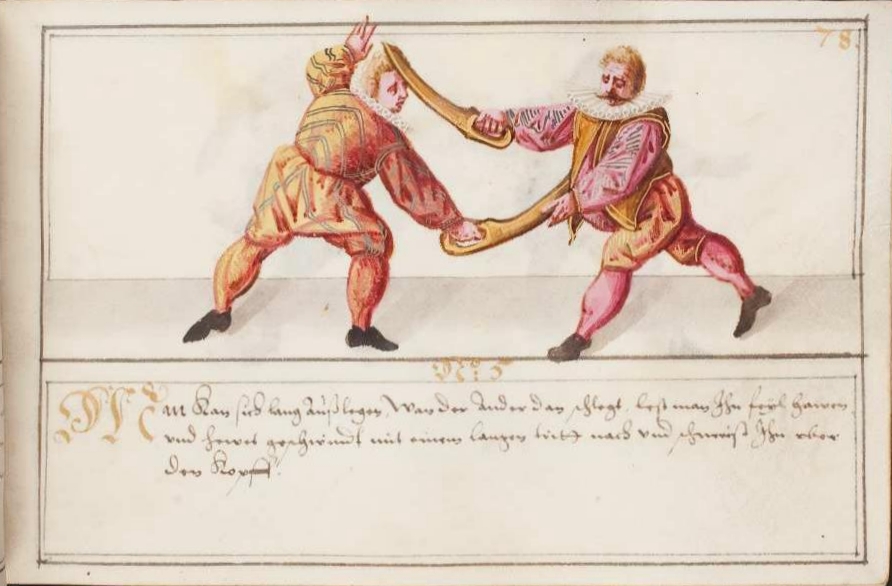 78.
No: 5
Man kan sich lang auß legen, Wan der Ander dan schlegt, lest man Ihn feyl hawen,
und hewet geschwindt mit einem langen tritt nach und schmeist Ihn uber
den Kopff.